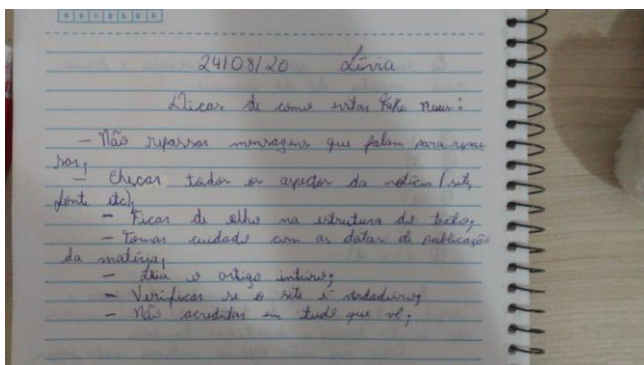 24/08/20 Lívia
Dicas de como evitar Fake News:
- Não repassar mensagens que falam para repas
sar;
- Checar todos os aspectos da notícia (site,
fonte etc);
- Ficar de olho na estrutura do texto;
- Tomar cuidado com as datas de publicação
da matéria;
- Leia o artigo inteiro;
- Verificar se o site é verdadeiro;
- Não acreditar em tudo que vê;